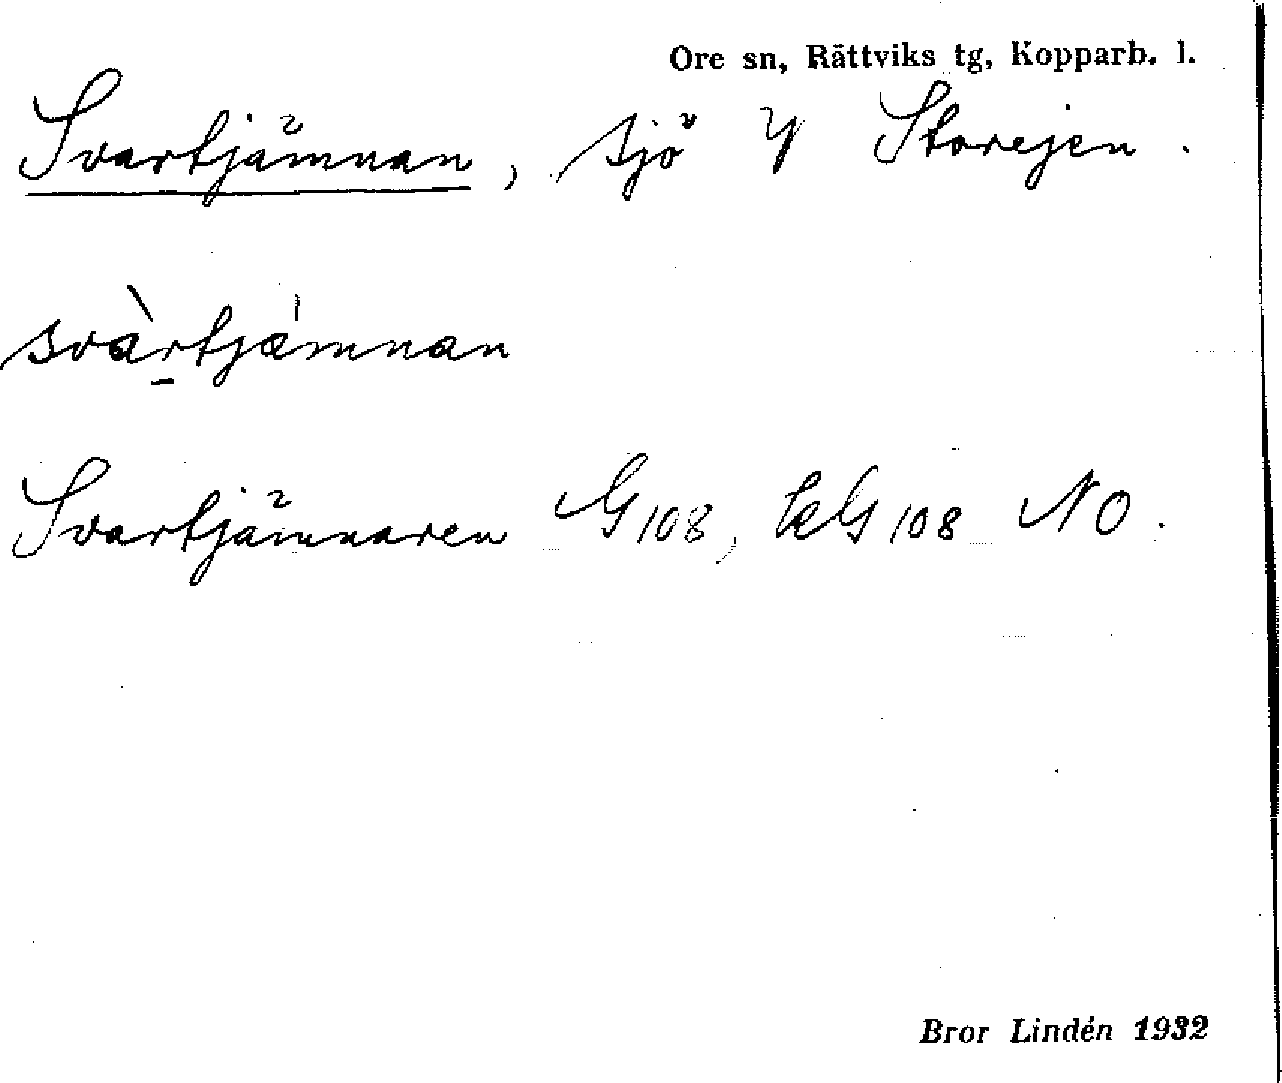 Ore sn, Rättviks tg, Kopparb. l.
Svartjämnan, sjö V Storejen.
svàrtjámnan
Svartjämnaren G108, kG108 NO.
Bror Lindén 1932